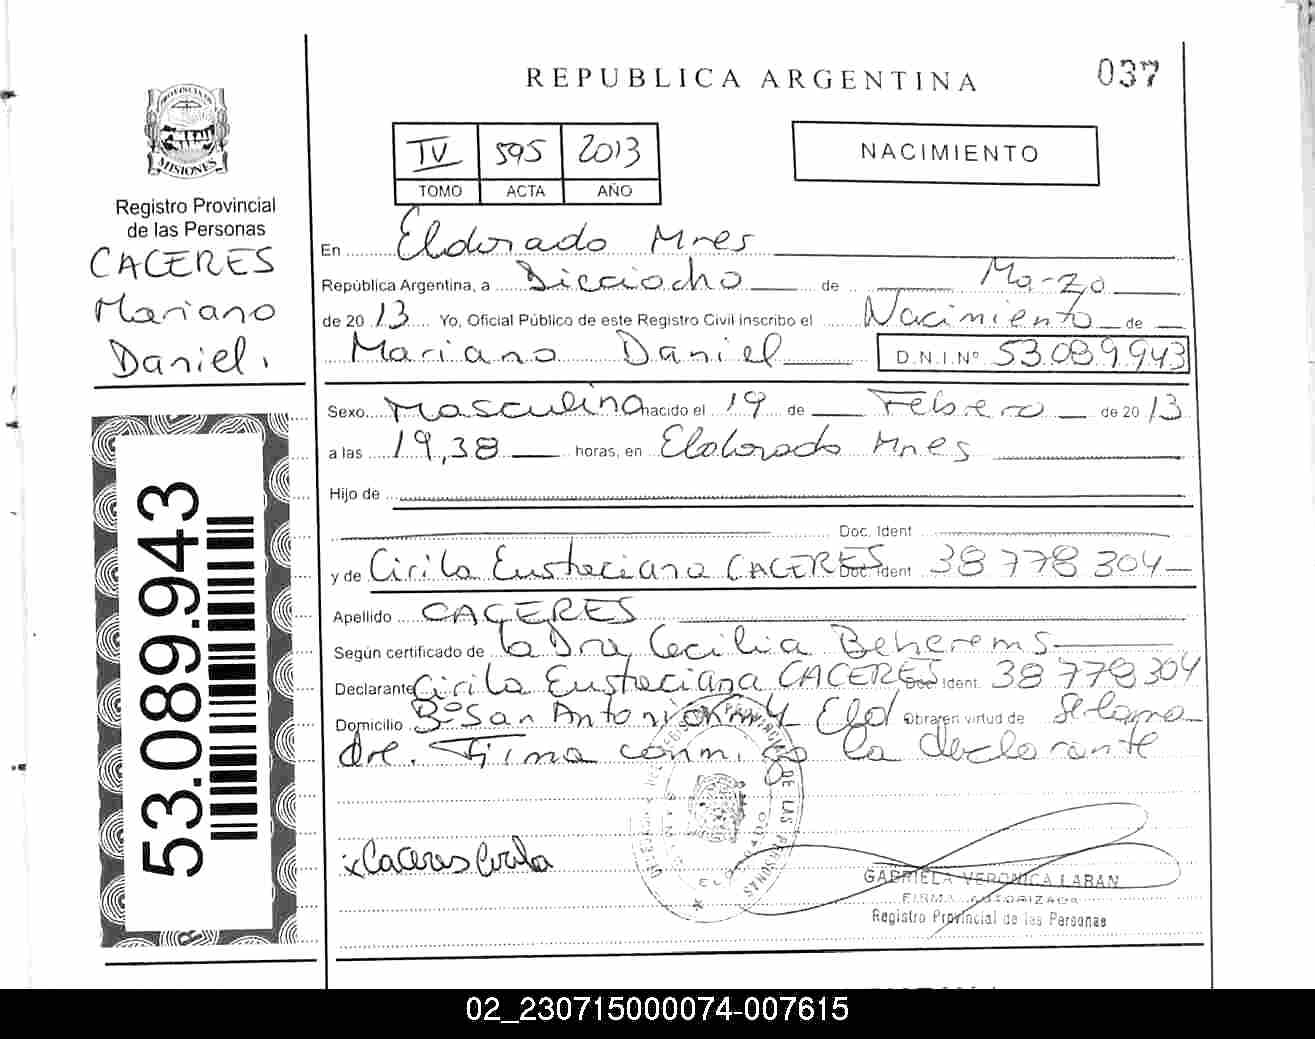 REPUBLICA ARGENTINA
037
PROVINCIA DE
MISIONES
Registro Provincial
de las Personas
CACERES
Mariano
Daniel.
53.089.943
IV 595 2013
TOMO ACTA AÑO
NACIMIENTO
En Eldorado Mnes
República Argentina, a Dieciocho de Marzo
de 2013 Yo, Oficial Público de este Registro Civil inscribo el Nacimiento de
Mariano Daniel D.N.I.Nº 53.089.943
Sexo Masculino nacido el 19 de Febrero de 2013
a las 19,38 horas, en Eldorado Mnes
Hijo de
Doc. Ident
y de Cirila Eustaciana CACERES Doc. Ident 38778304
Apellido CACERES
Según certificado de la Dra Cecilia Beherems
Declarante Cirila Eustaciana CACERES Doc Ident. 38778304
Domicilio Bº San Antonio Km 4 Eld Obra en virtud de ser la ma
dre. Firma conmigo la declarante
x Caceres Cirila
DE LAS PERSONAS
GABRIELA VERONICA LABAN
FIRMA AUTORIZADA
Registro Provincial de las Personas
02_230715000074-007615